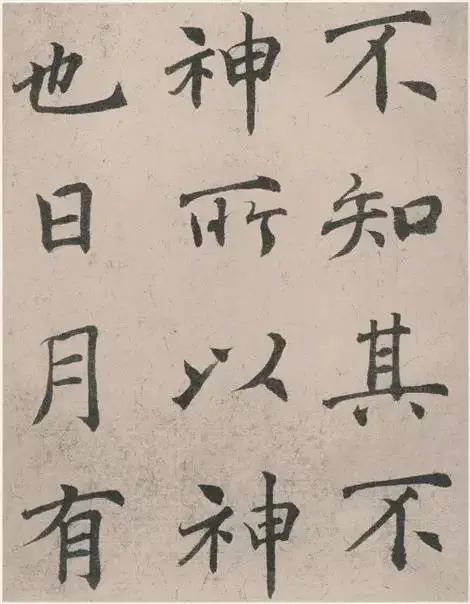 不知其不
神所以神
也日月有